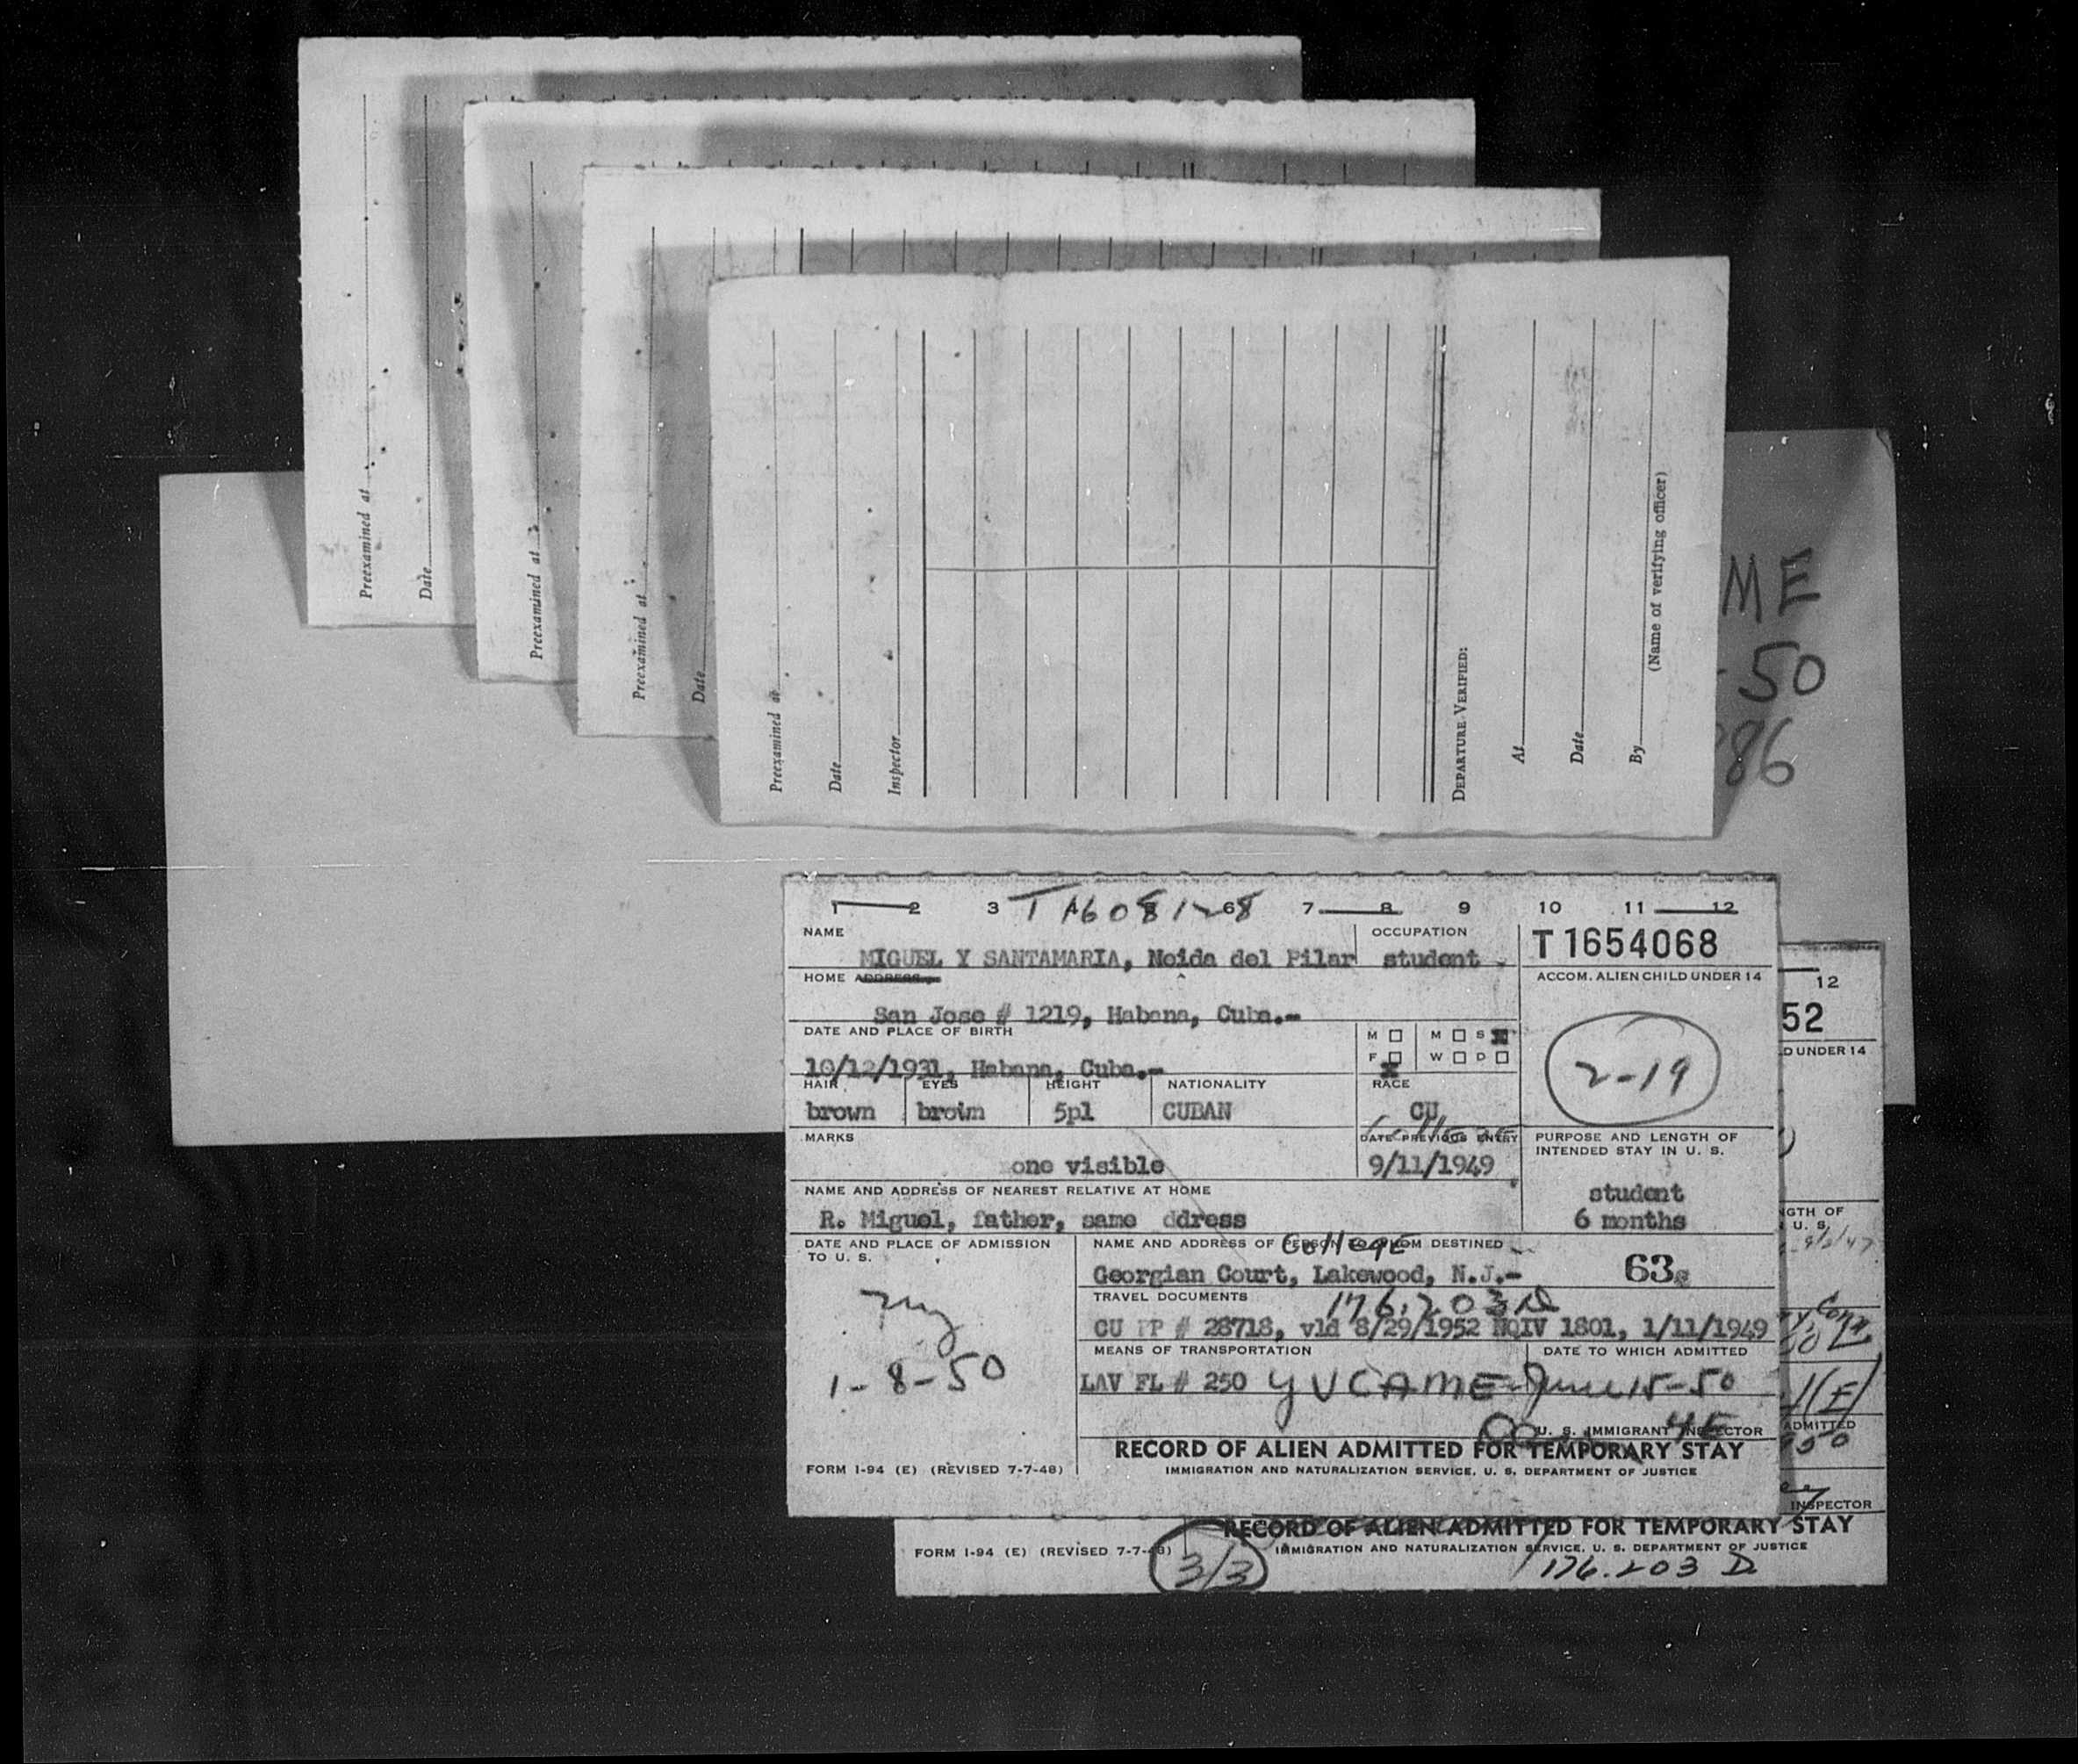 Preexamined at
Date
Preexamined at
Preexamined at
Date
Preexamined at
Date
Inspector
DEPARTURE VERIFIED:
At
Date
By
(Name of verifying officer)
ME
50
86
1 2 3 4 5 6 7 8 9 10 11 12
NAME
OCCUPATION
T 1654068
MIGUEL Y SANTAMARIA, Noida del Pilar
student
HOME ADDRESS
ACCOM. ALIEN CHILD UNDER 14
San Jose # 1219, Habana, Cuba.-
DATE AND PLACE OF BIRTH
M M S
F W D
10/12/1931, Habana, Cuba.-
2-19
HAIR EYES HEIGHT NATIONALITY RACE
brown brown 5p1 CUBAN CU
MARKS
DATE PREVIOUS ENTRY
PURPOSE AND LENGTH OF
INTENDED STAY IN U. S.
one visible
9/11/1949
NAME AND ADDRESS OF NEAREST RELATIVE AT HOME
student
R. Miguel, father, same ddress
6 months
DATE AND PLACE OF ADMISSION
TO U. S.
NAME AND ADDRESS OF PERSON TO WHOM DESTINED
College
Georgian Court, Lakewood, N.J.-
63
TRAVEL DOCUMENTS
176.203 D
CU PP # 28718, vld 8/29/1952 NQIV 1801, 1/11/1949
MEANS OF TRANSPORTATION
DATE TO WHICH ADMITTED
1-8-50
LAV FL # 250 YUCAME June 15-50
U. S. IMMIGRANT INSPECTOR
RECORD OF ALIEN ADMITTED FOR TEMPORARY STAY
FORM I-94 (E) (REVISED 7-7-48)
IMMIGRATION AND NATURALIZATION SERVICE, U. S. DEPARTMENT OF JUSTICE
12
52
D UNDER 14
GTH OF
U. S.
ADMITTED
INSPECTOR
RECORD OF ALIEN ADMITTED FOR TEMPORARY STAY
FORM I-94 (E) (REVISED 7-7-48)
IMMIGRATION AND NATURALIZATION SERVICE, U. S. DEPARTMENT OF JUSTICE
3/3
176.203 D